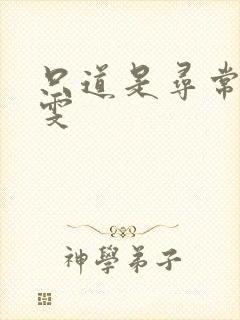 只道是尋常
雯
神學弟子